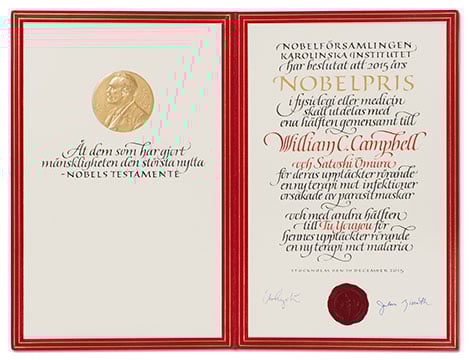 Åt dem som har gjort
mänskligheten den största nytta
- NOBELS TESTAMENTE
NOBELFÖRSAMLINGEN
KAROLINSKA INSTITUTET
har beslutat att 2015 års
NOBELPRIS
i fysiologi eller medicin
skall utdelas med
ena hälften gemensamt till
William C. Campbell
och Satoshi Ōmura
för deras upptäckter rörande
en ny terapi mot infektioner
orsakade av parasitmaskar
och med andra hälften
till Tu Youyou för
hennes upptäckter rörande
en ny terapi mot malaria
STOCKHOLM DEN 10 DECEMBER 2015